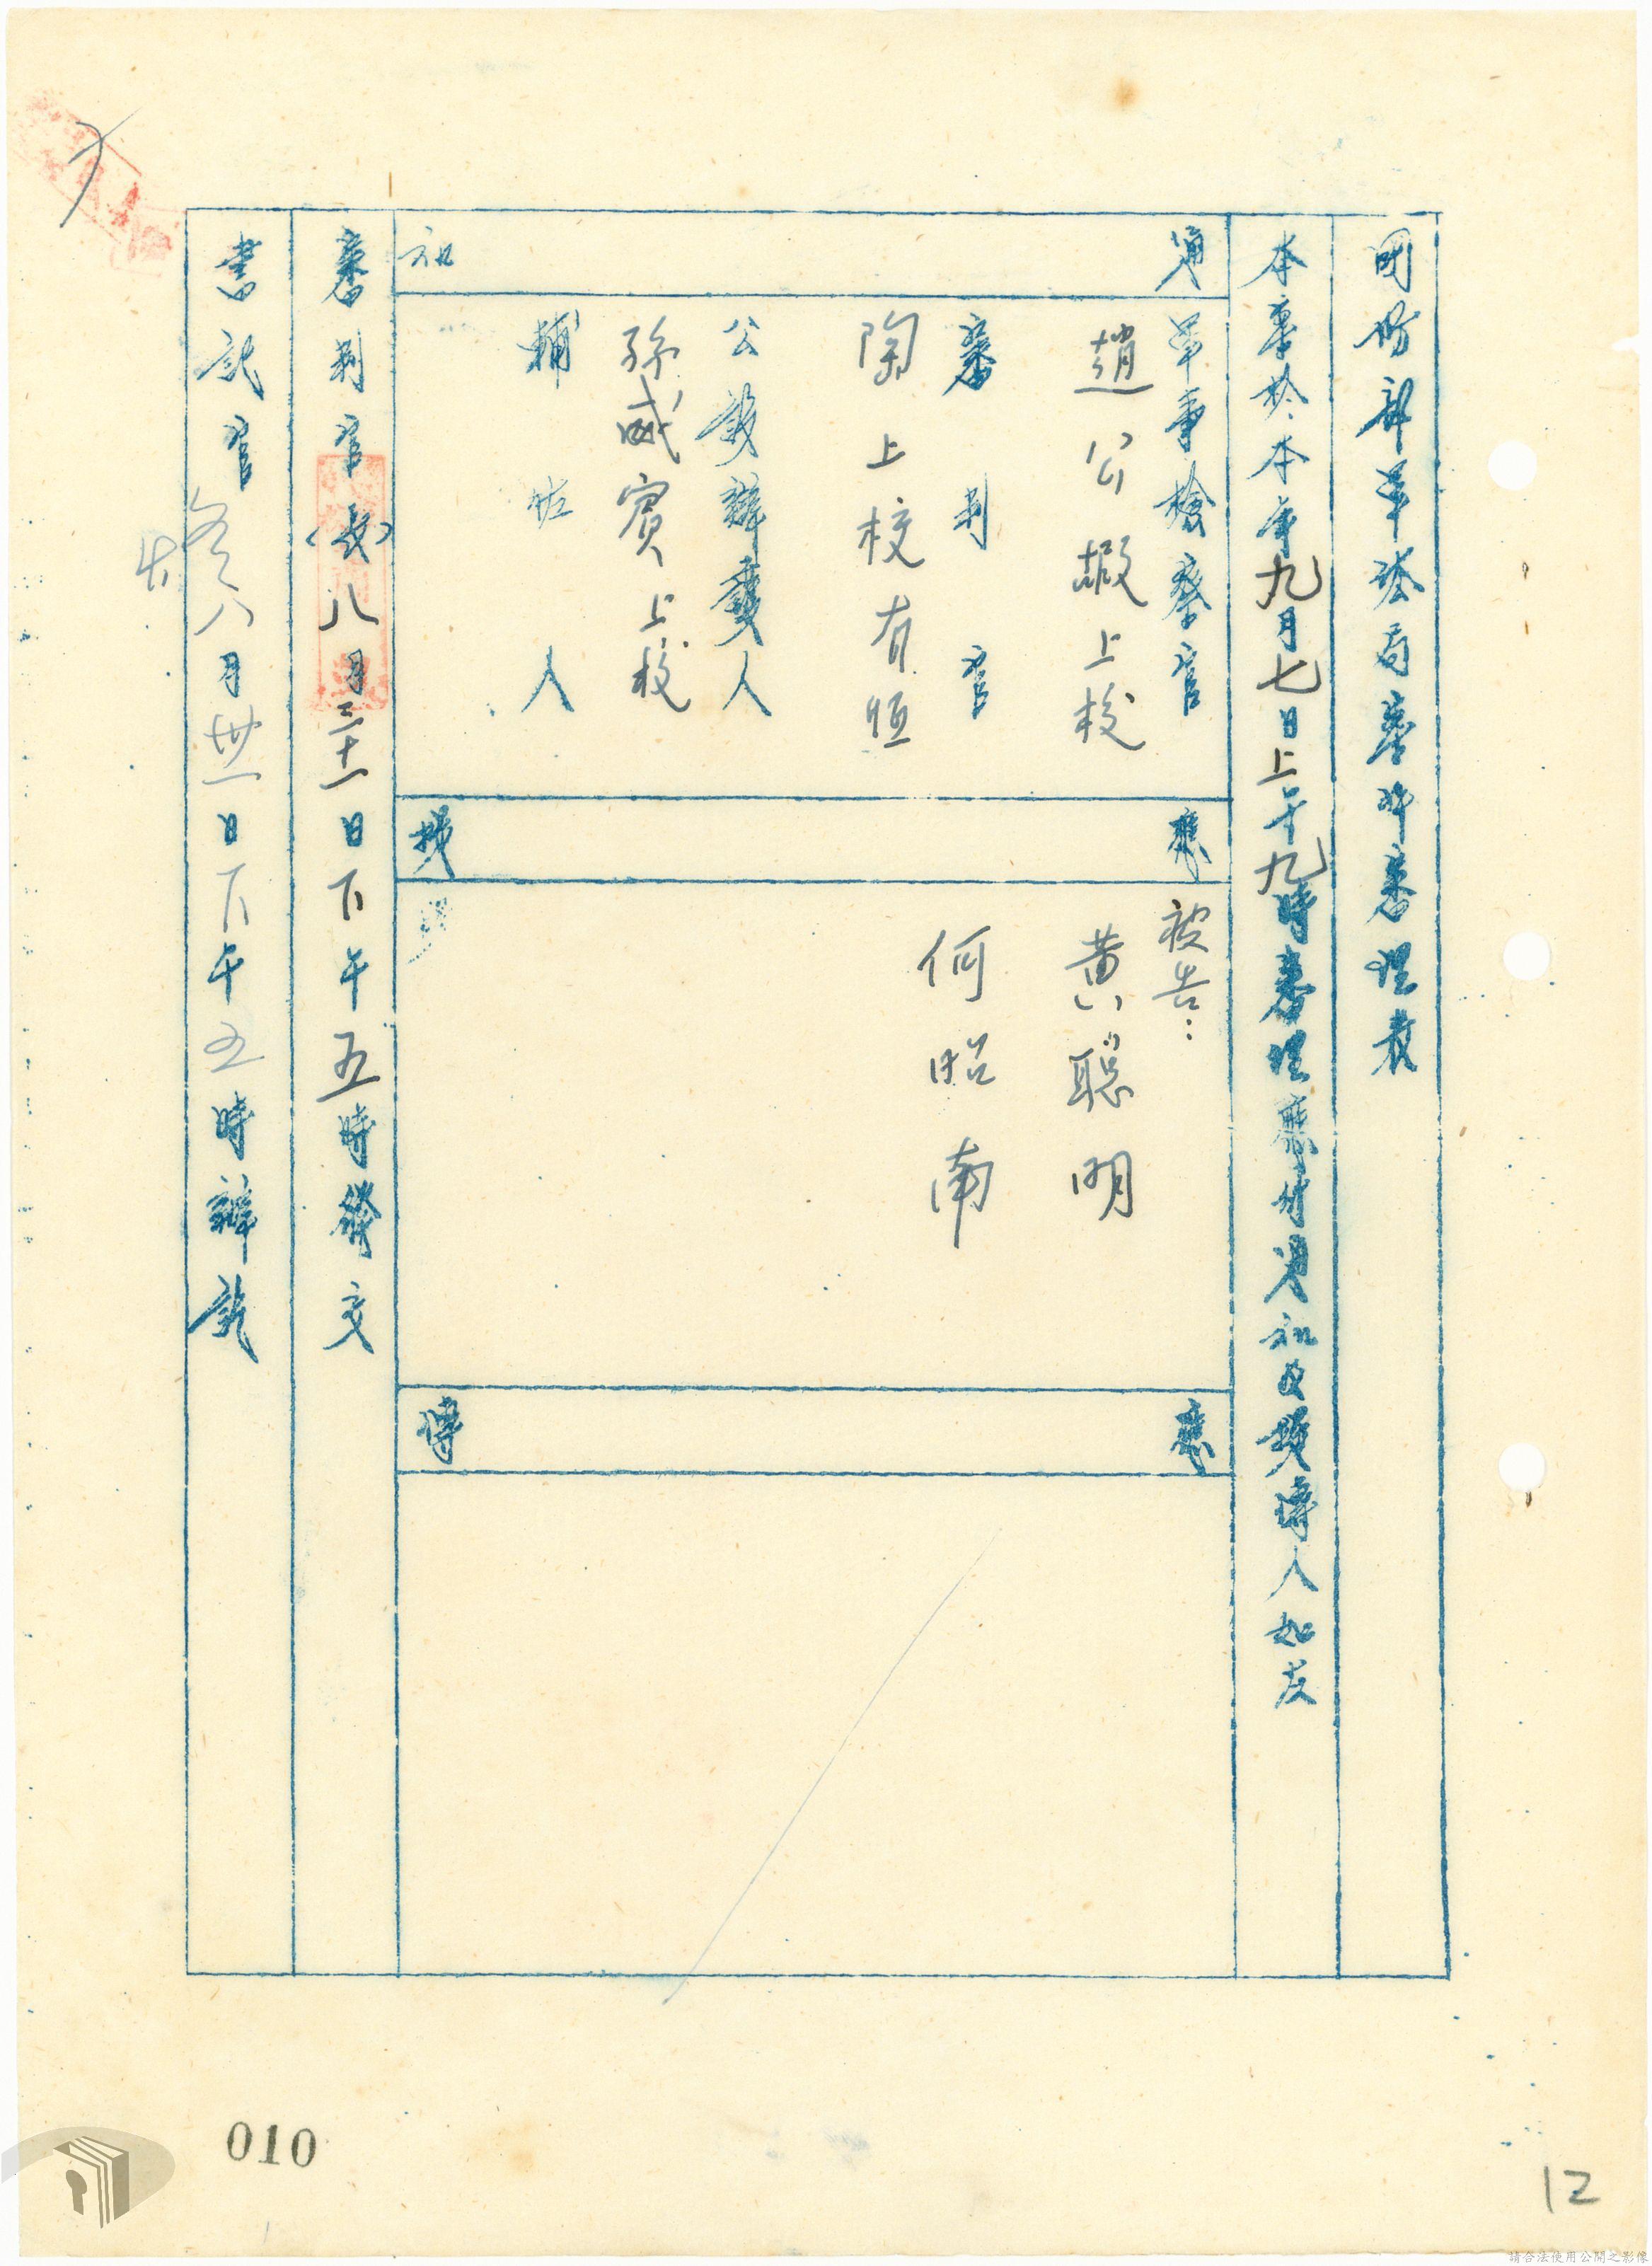 國防部軍法局案件審理表
本案於本年九月七日上午九時審理應行通知及提傳人如左
通知
軍事檢察官
趙公嘏上校
審判官
陶上校有恒
公設辯護人
孫威賓上校
輔佐人
應提
被告：
黃聰明
何昭南
應傳
審判官(長)八月三十一日下午五時發交
書記官 八月卅一日下午五時辦訖
010
12
請合法使用公開之影像